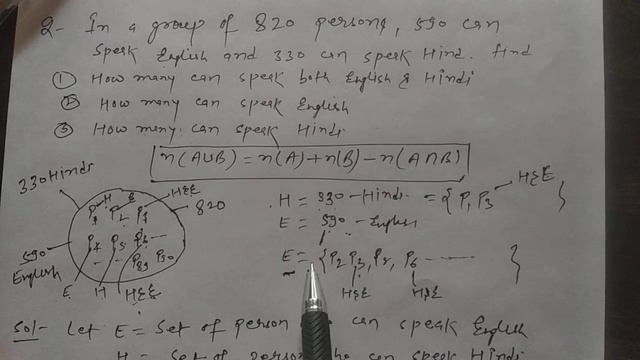 2- In a group of 820 persons, 590 can
speak English and 330 can speak Hindi. find
① How many can speak both English & Hindi
② How many can speak English
③ How many can speak Hindi
n(AUB) = n(A) + n(B) - n(A∩B)
330 Hindi
H
E
H&E
820
P3 P2 P7
P4 P5 P6 --
- - P89 P90
590
English
E H H&E
H = 330 - Hindi = { P1 P3 }
H&E
E = 590 - English
E = { P2 P3, P5, P6 ------ }
H&E H&E
Sol- Let E = Set of person who can speak English
H = Set of person who can speak Hindi